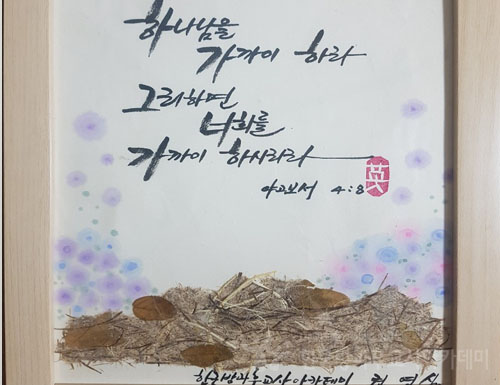 하나님을
가까이 하라
그리하면
너희를
가까이 하시리라
英
야고보서 4:8
한국방과후교사아카데미